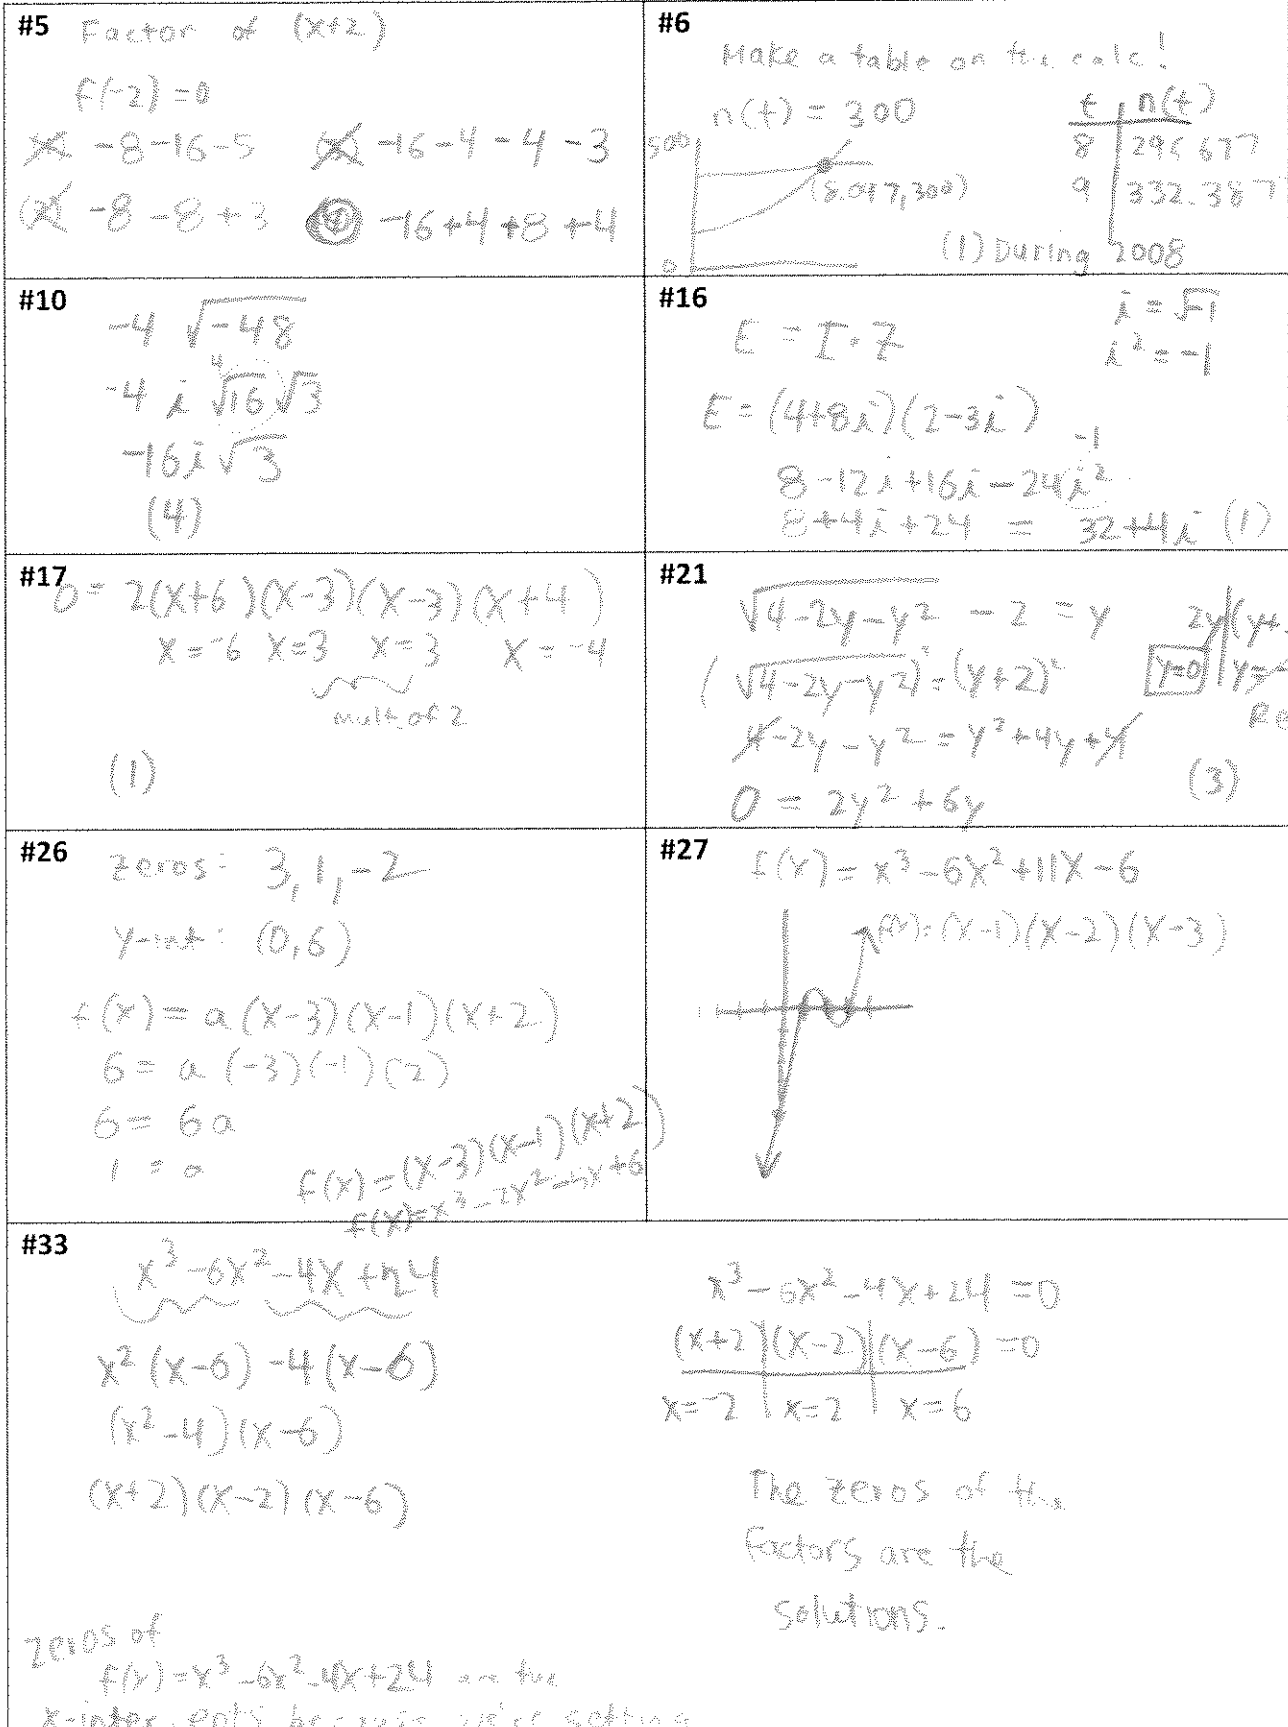 #5 Factor of (x+2)
f(-2)=0
-8-16-5
-16-4-4-3
-8-8+3
-16+4+8+4
#6
Make a table on the calc!
n(t) = 300
t n(t)
8
9 332.387
500
(8.087,300)
0
(1) During 2008
#10
-4 √-48
4
-4 i √16 √3
-16i√3
(4)
#16
i = √-1
i² = -1
E = I·Z
E = (4+8i)(2-3i)
-1
8-12i+16i-24i²
8+4i+24 = 32+4i (1)
#17
0 = 2(x+6)(x-3)(x-3)(x+4)
x=-6 x=3 x=3 x=-4
mult. of 2
(1)
#21
√4-2y-y² - 2 = y
(√4-2y-y²)² = (y+2)²
4-2y-y² = y²+4y+4
0 = 2y²+6y
2y (y+
y=0
(3)
#26
zeros: 3, 1, -2
y-int: (0,6)
f(x) = a(x-3)(x-1)(x+2)
6 = a(-3)(-1)(2)
6 = 6a
1 = a
f(x) = (x-3)(x-1)(x+2)
f(x)=x³-2x²-5x+6
#27
f(x) = x³-6x²+11x-6
f(x)=(x-1)(x-2)(x-3)
#33
x³-6x²-4x+24
x²(x-6)-4(x-6)
(x²-4)(x-6)
(x+2)(x-2)(x-6)
x³-6x²-4x+24=0
(x+2)(x-2)(x-6)=0
x=-2 x=2 x=6
The zeros of the
factors are the
solutions.
zeros of
f(x)=x³-6x²-4x+24 are the
because we're setting